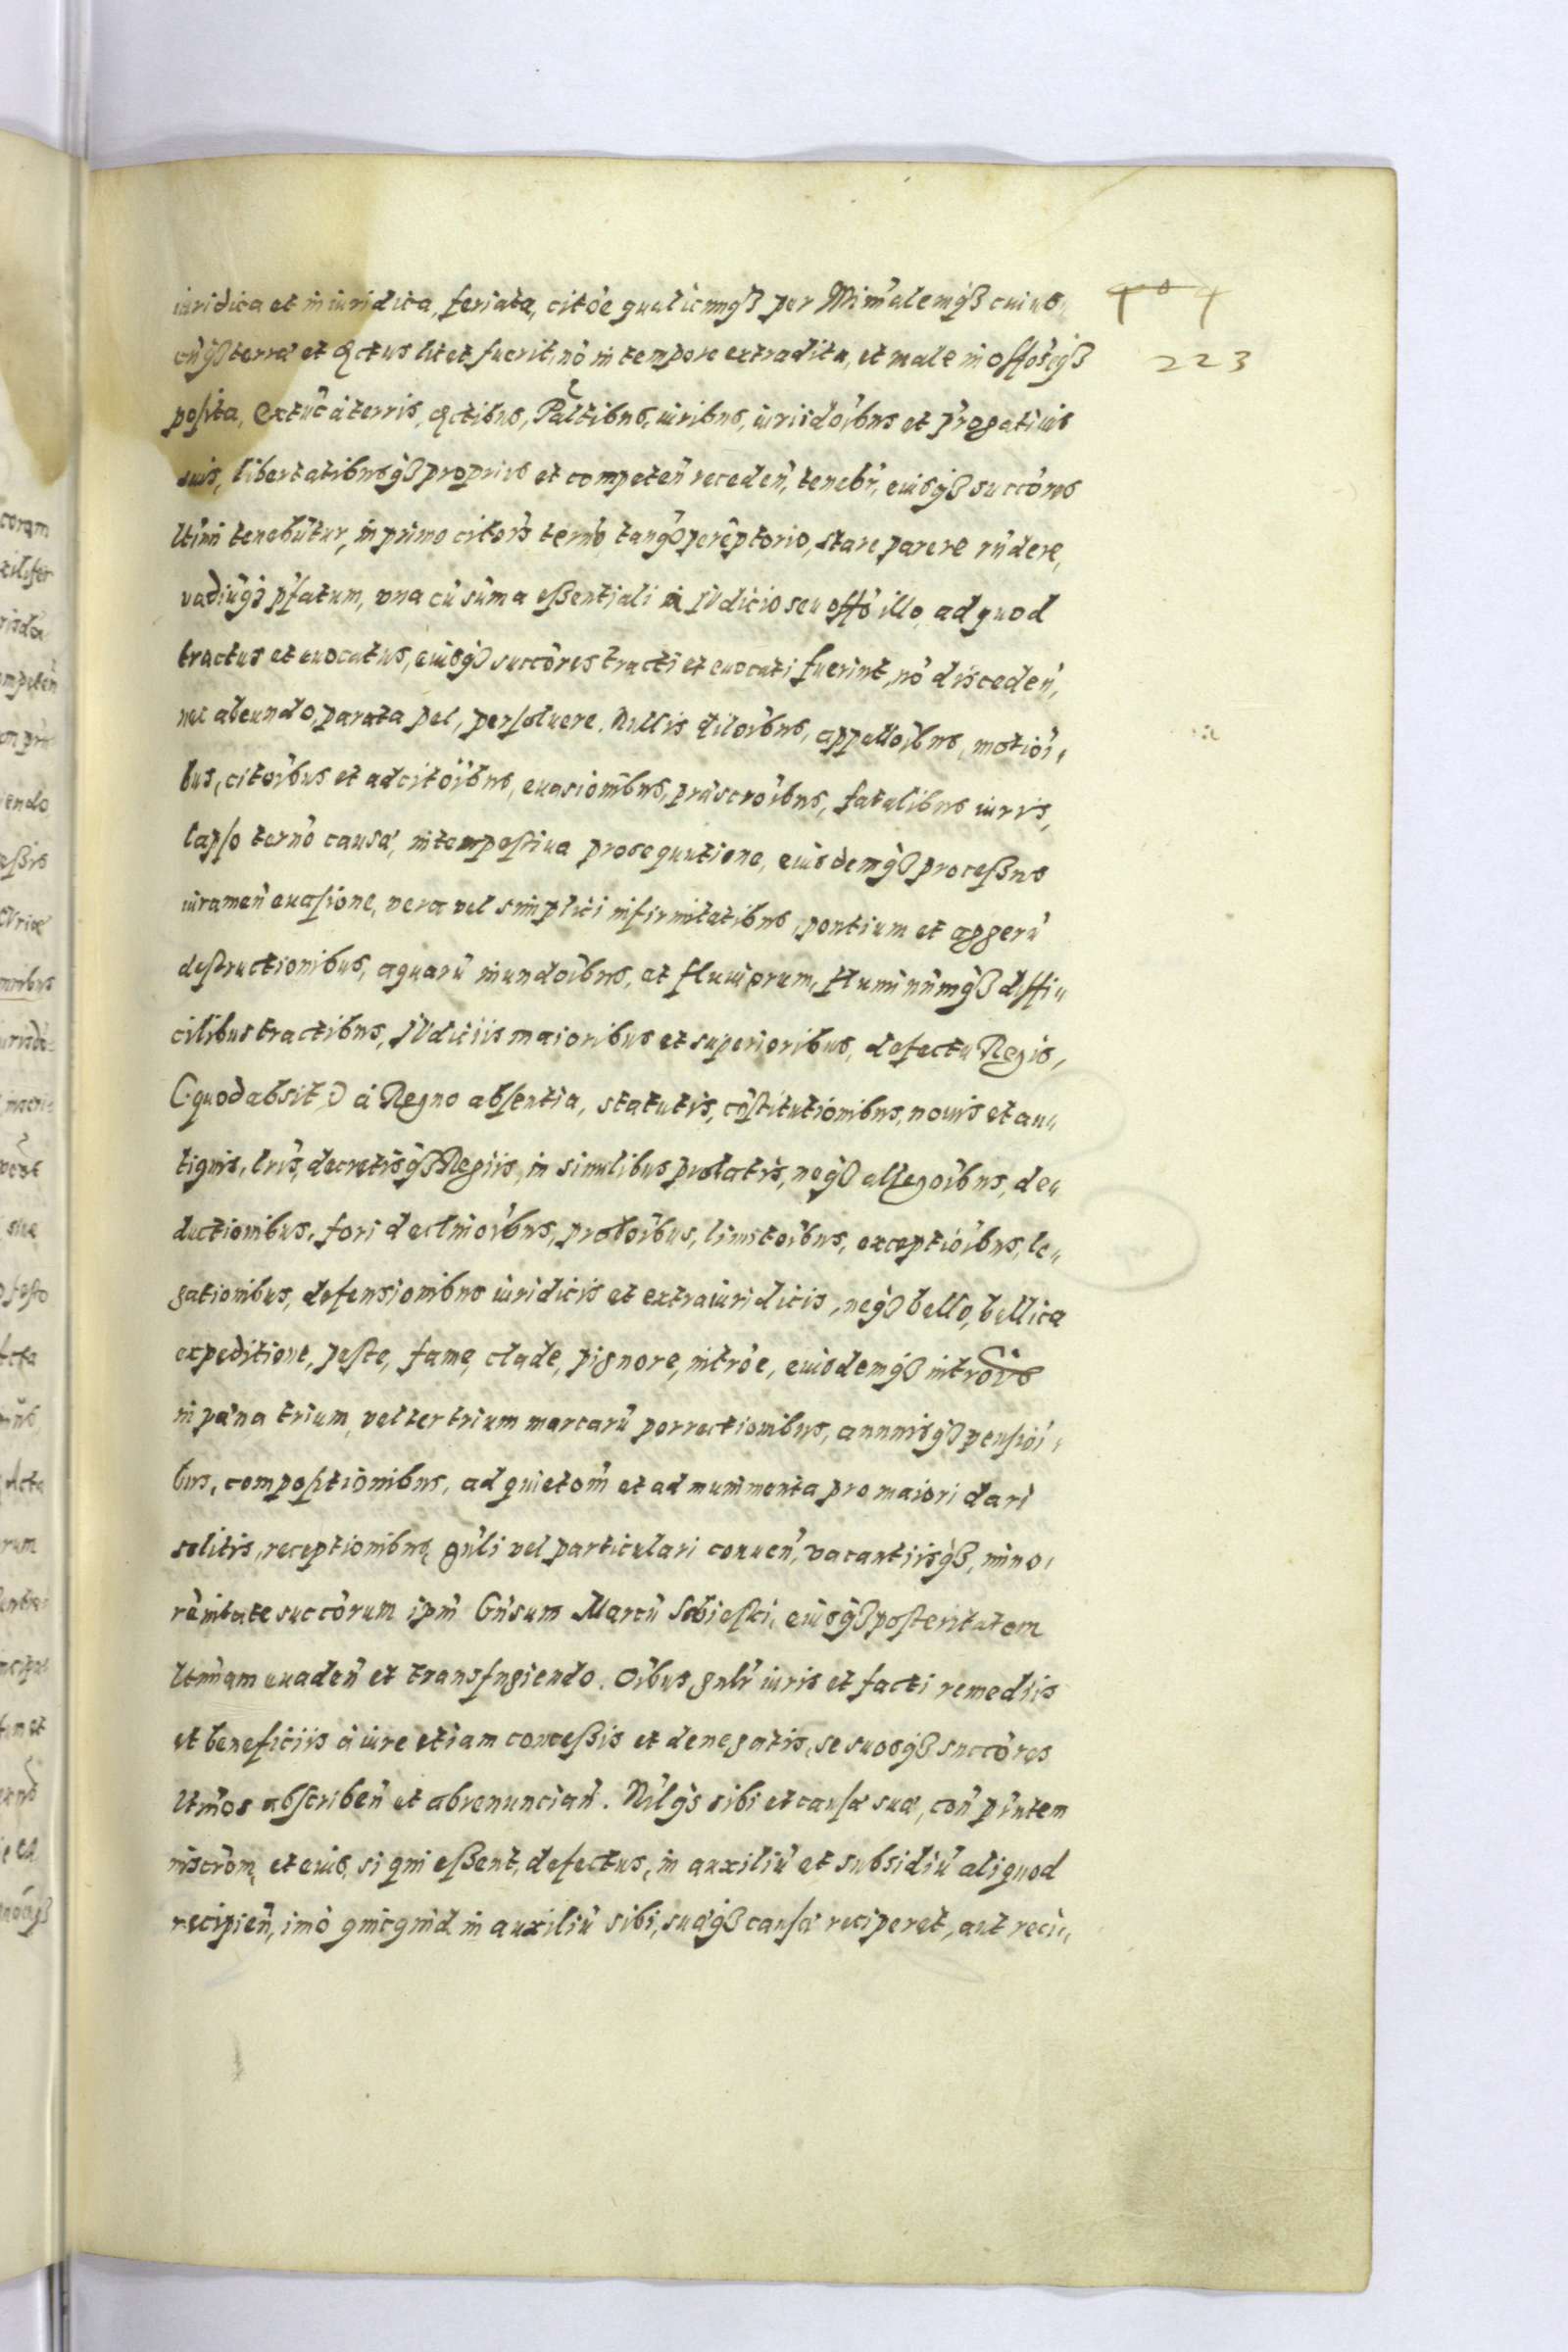 404
iuridica et iniuridica, feriata, citõe qualicunq3 per Minr̃alemq3 cuius„
cũq3 terræ et dctus licet fuerit, nõ in tempore extradita, et male in offõseq3
223
posita, Extũc à terris, dctibus, Paltibus, iuribus, iurisdoĩbus et p̃rogatiuis
suis, libertatibusq3 proprius et competeñ recedeñ, tenebr̃, eiusq3 succõres
ltimi tenebũtur, in primo citoñis term̃o tanq3 perẽptorio, stare parere rñdere,
vadiũq3 p̃fatum, vna cũ sũma eßentiali in Iudicio seu offõ illo, ad quod
tractus et euocatus, eiusq3 succõres tracti et euocati fuerint, nõ discedeñ,
nec abeundo, parata pec, persoluere. Nullis diloĩbus, appelloĩbus, motioĩ„
bus, citoĩbus et adcitoĩbus, euasionĩbus, præscroĩbus, fatalibus iuris,
lapso term̃o causæ, intempestiua prosequutione, eiusdemq3 proceßus
iurameñ euasione, vera vel simplici infirmitatibus, pontium et aggerũ
destructionibus, aquarũ inundoĩbus, et fluuiorum, fluminũmq3 diffi„
cilibus tractibus, Iudiciis maioribus et superioribus, defectu Regis,
(quod absit) à Regno absentia, statutis, cõstitutionibus, nouis et an„
tiquis, lr̃is, decretisq3 Regiis, in similibus prolatis, neq3 allegoĩbus, de„
ductionibus, fori declinoĩbus, proboĩbus, limitoĩbus, exceptioĩbus, le„
gationibus, defensionibus iuridicis et extraiuridicis, neq3 bello, bellica
expeditione, peste, fame, clade, pignore, intrõe, eiusdemq3 introĩs
in pæna trium, vel ter trium marcarũ porrectionibus, annuisq3 pensioĩ„
bus, compositionibus, ad quietom̃ et ad munimenta pro maiori dari
solitis, receptionibus, gñli vel particulari conueñ, vacantiisq3, mino„
rẽnitate succõrum ipm̃ Gñsum Marcũ Sobieski, eiusq3 posteritatem
ltm̃am euadeñ et transfugiendo. Oĩbus, gñlr̃ iuris et facti remediis
et beneficiis à iure etiam conceßis et denegatis, se suosq3 succõres
ltm̃os abscribeñ et abrenunciañ. Nilq3 sibi et causæ suæ, coñ pñtem
inscrõm, et eius, si qui eßent, defectus, in auxiliũ et subsidiũ aliquod
recipieñ, imò quicquid in auxiliũ sibi, suæq3 causæ reciperet, aut reci„